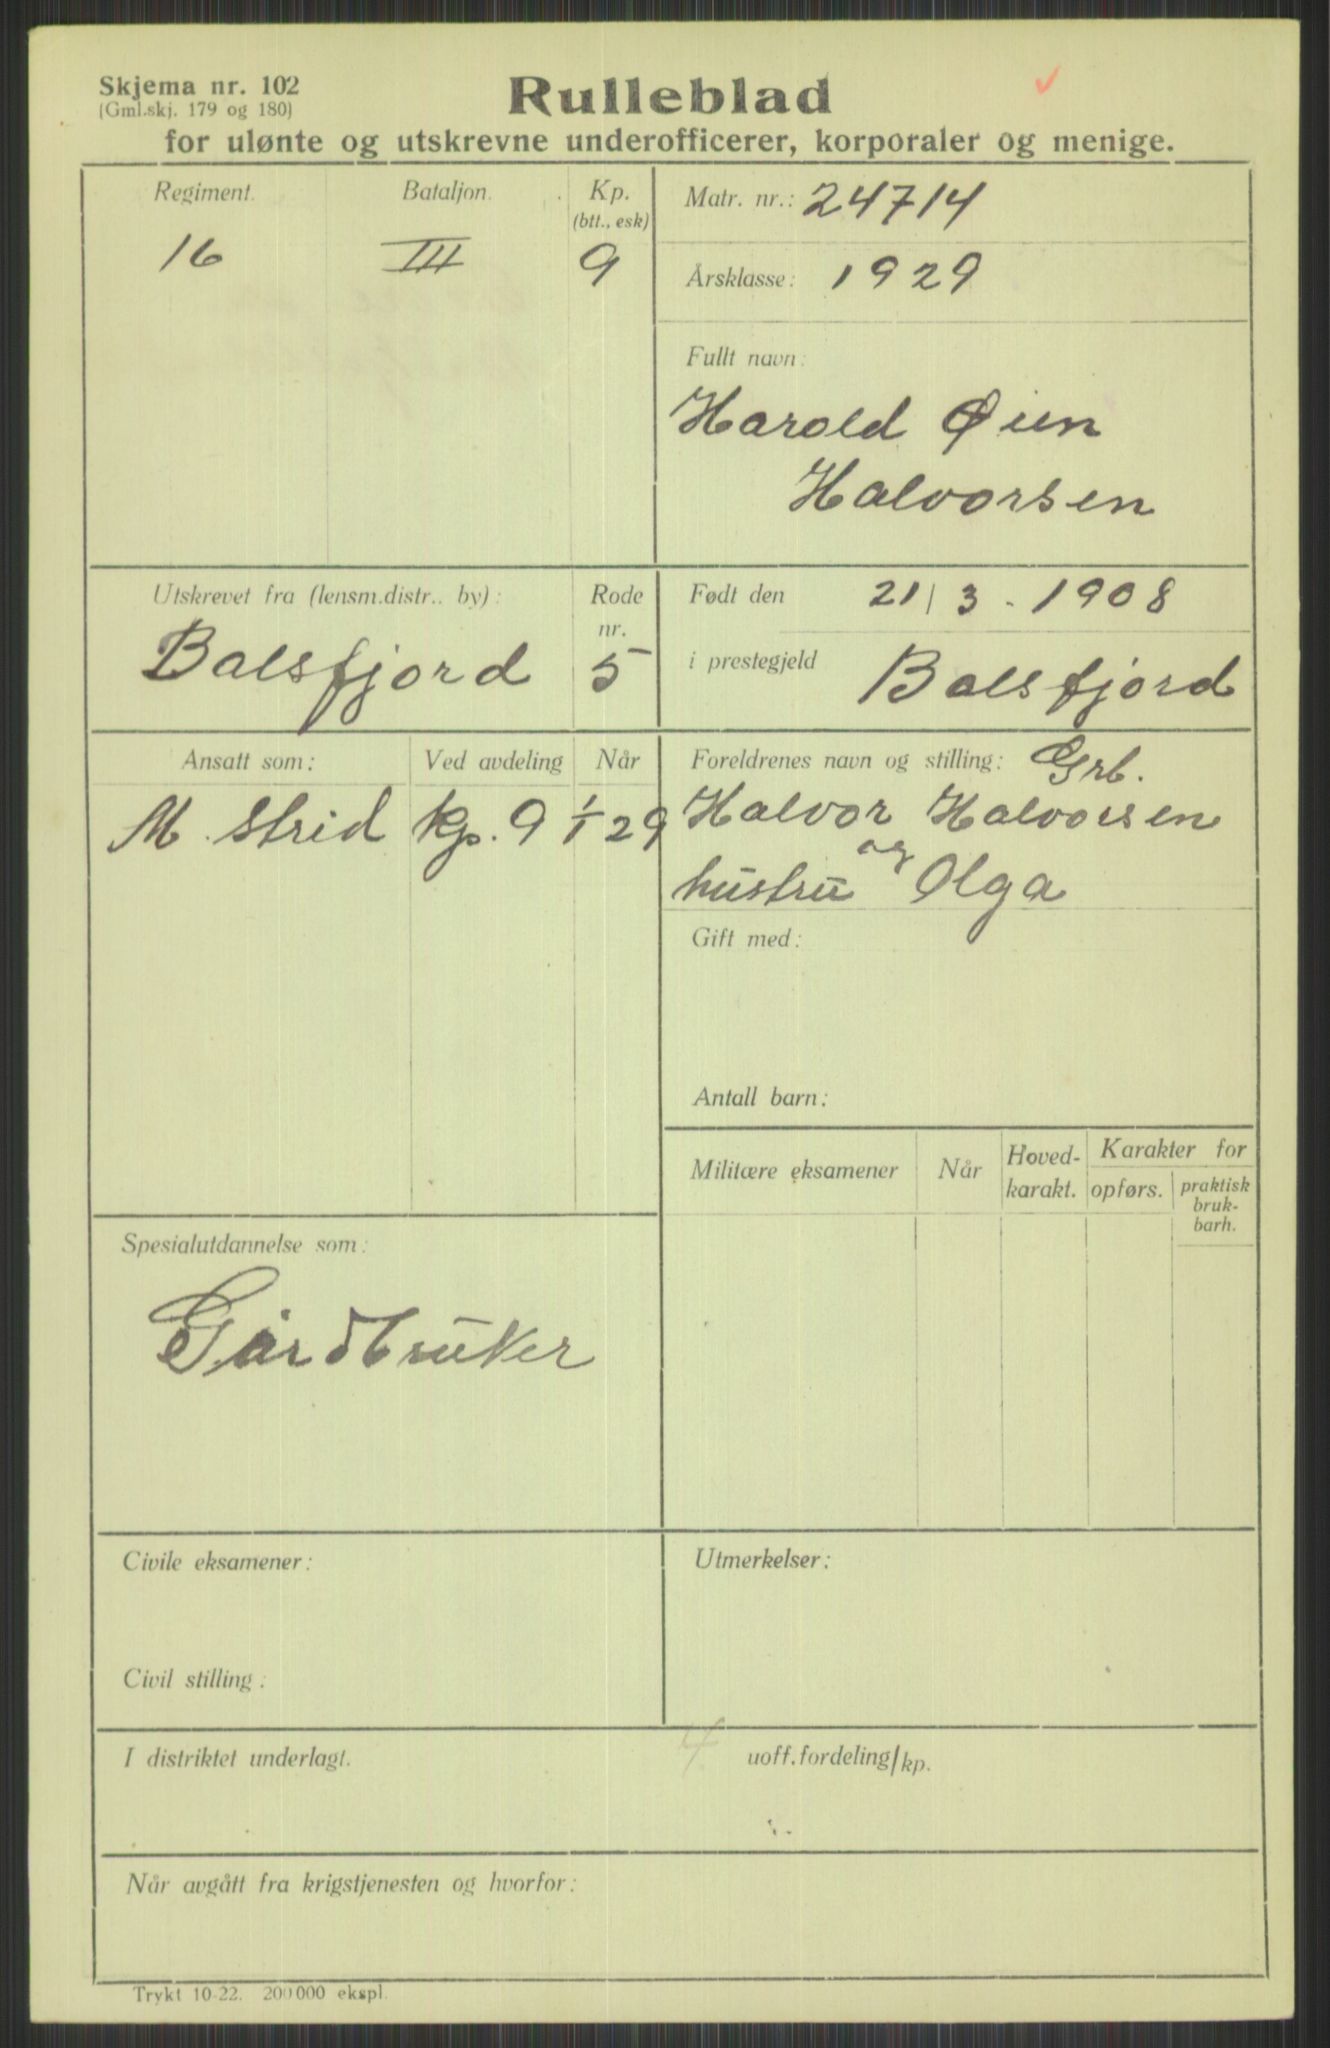 Skjema nr. 102
(Gml.skj. 179 og 180)
Rulleblad
for ulønte og utskrevne underofficerer, korporaler og menige.
Regiment.
Bataljon.
Kp.
(btt., esk)
16
III
9
Matr. nr.: 24714
Årsklasse: 1929
Fullt navn:
Harold Øien
Halvorsen
Utskrevet fra (lensm.distr.. by):
Rode
nr.
Balsfjord
5
Født den 21/3 - 1908
i prestegjeld Balsfjord
Ansatt som:
Ved avdeling
Når
M. strid
kp. 9
1/1 29
Foreldrenes navn og stilling: Grb.
Halvor Halvorsen
og
hustru Olga
Gift med:
Antall barn:
Militære eksamener
Når
Hoved-
karakt.
Karakter for
opførs.
praktisk
bruk-
barh.
Spesialutdannelse som:
Gårdbruker
Civile eksamener:
Civil stilling:
Utmerkelser:
I distriktet underlagt.
4
uoff.fordeling/kp.
Når avgått fra krigstjenesten og hvorfor:
Trykt 10-22. 200000 ekspl.